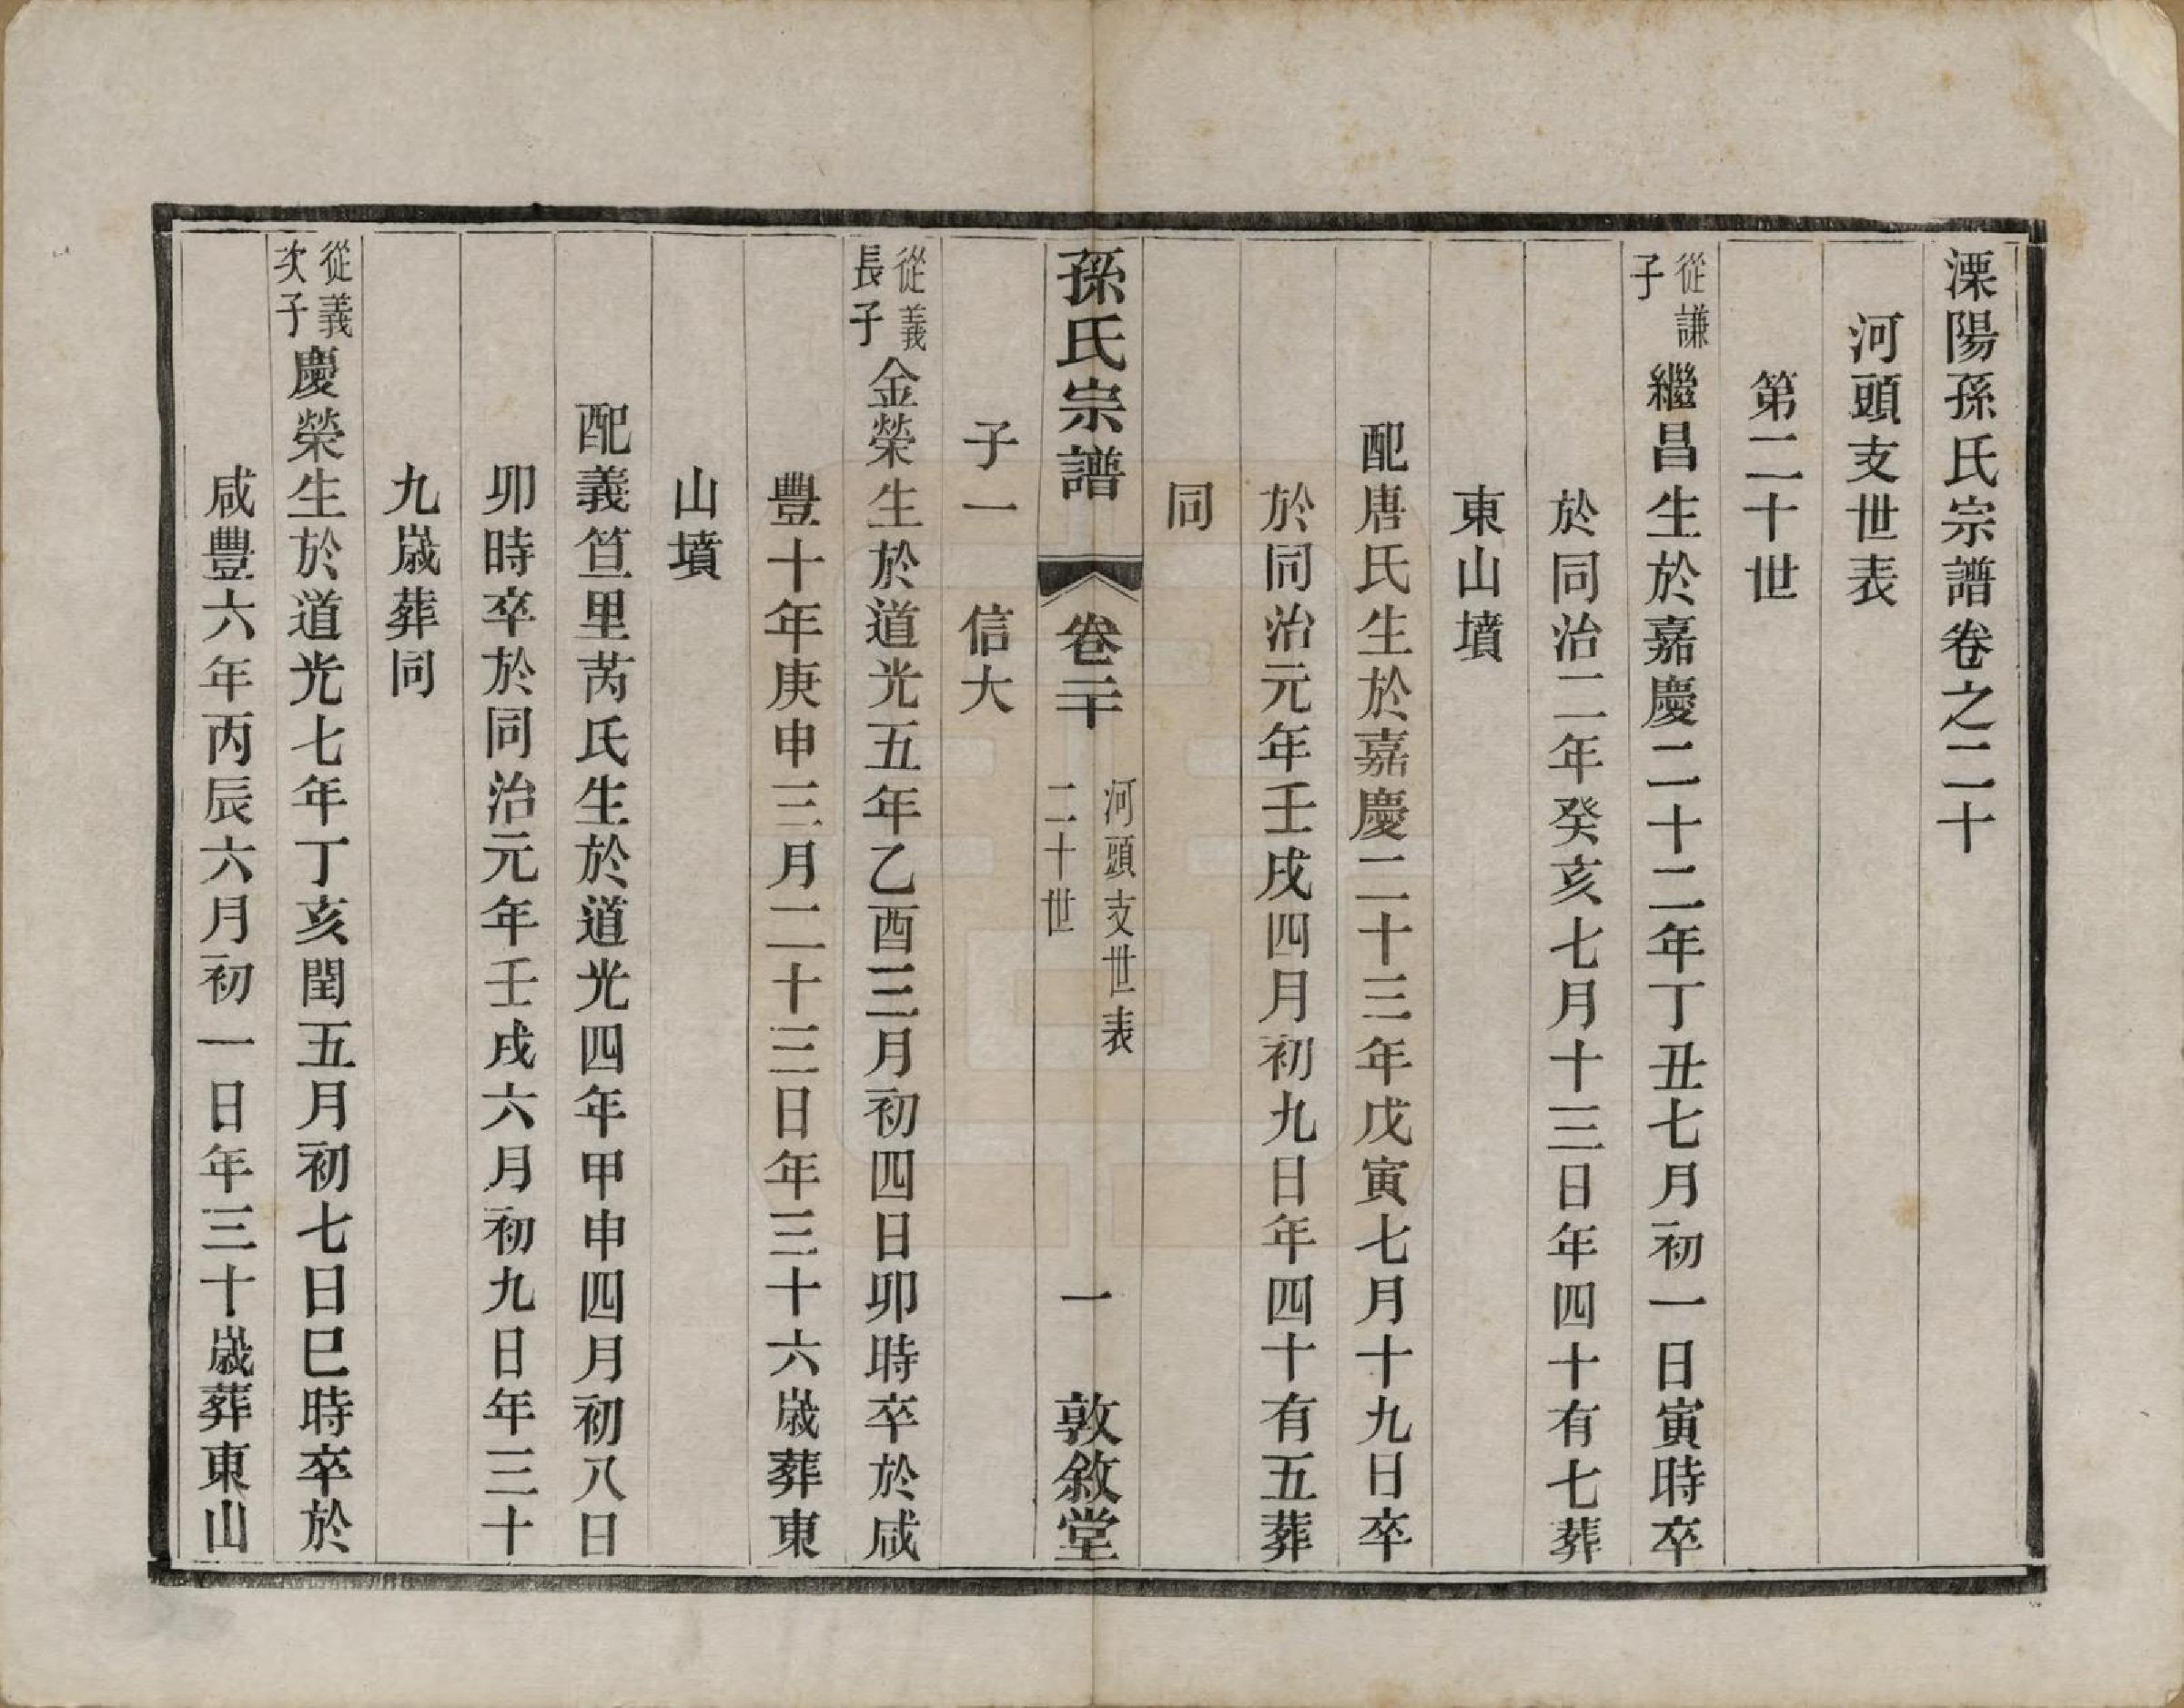 溧陽孫氏宗譜卷之二十
河頭支世表
第二十世
從謙子繼昌生於嘉慶二十二年丁丑七月初一日寅時卒
於同治二年癸亥七月十三日年四十有七葬
東山墳
配唐氏生於嘉慶二十三年戊寅七月十九日卒
於同治元年壬戌四月初九日年四十有五葬
同
孫氏宗譜 卷二十 河頭支世表 二十世 一 敦敘堂
子一 信大
從義長子金榮生於道光五年乙酉三月初四日卯時卒於咸
豐十年庚申三月二十三日年三十六歲葬東
山墳
配義笪里芮氏生於道光四年甲申四月初八日
卯時卒於同治元年壬戌六月初九日年三十
九歲葬同
從義次子慶榮生於道光七年丁亥閏五月初七日巳時卒於
咸豐六年丙辰六月初一日年三十歲葬東山